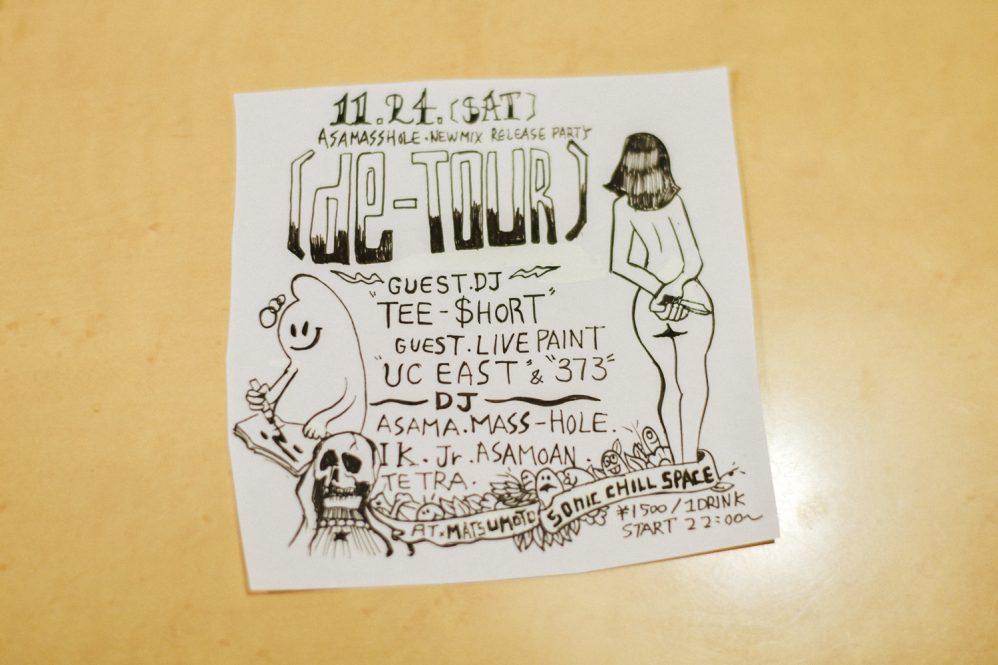 11.24.(SAT)
ASAMASSHOLE.NEWMIX RELEASE PARTY
(de-TOUR)
GUEST.DJ
"TEE-$HORT"
GUEST.LIVE PAINT
"UC EAST" & "373"
DJ
ASAMA.MASS-HOLE.
IK.Jr.ASAMOAN.
TETRA.
AT.MATSUMOTO SONIC CHILL SPACE
¥1500/1DRINK
START 22:00~